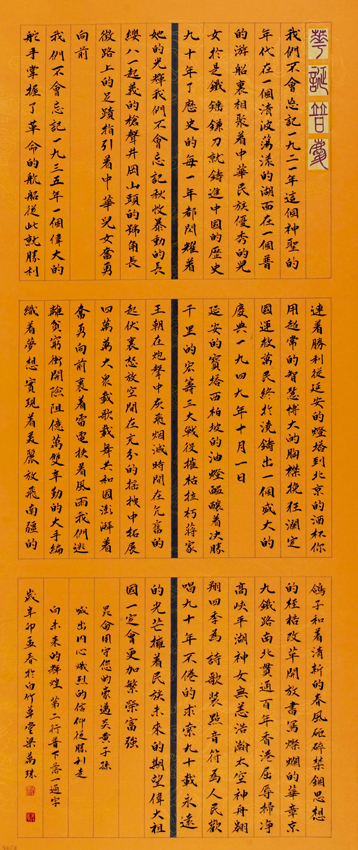 華誕
我們不會忘記一九二一年這個神聖的
年代在一個清波蕩漾的湖面在一個普
的游船裏相聚着中華民族優秀的兒
女於是鐵鎚鐮刀就鑄進中國的歷史
九十年了歷史的每一年都閃耀着
她的光輝我們不會忘記秋收暴動的長
纓八一起義的槍聲井岡山頭的號角長
徵路上的足蹟指引着中華兒女奮勇
向前
我們不會忘記一九三五年一個偉大的
舵手掌握了革命的航船從此就勝利
連着勝利從延安的燈塔到北京的酒杯你
用超常的智慧博大的胸襟挽狂瀾定
國運救萬民終於澆鑄出一個盛大的
慶典一九四九年十月一日
延安的寶塔西柏坡的油燈醖釀着決勝
千里的宏籌三大戰役摧枯拉朽蔣家
王朝在炮聲中灰飛烟滅時間在亢奮的
起伏裏怒放空間在充分的搖拽中拓展
四萬萬大衆載歌載舞共和國澎湃着
奮勇向前裹着雷電挾着風雨我們逃
離貧窮衝開險阻億萬雙辛勤的大手編
織着夢想實現着美麗放飛南疆的
鴿子和着清新的春風砸碎禁錮思想
的桎梏改革開放書寫燦爛的華章京
九鐵路南北貫通百年香港屈辱掃净
高峽平湖神女無恙浩瀚太空神舟翱
翔四季為詩歌裝點音符為人民歡
唱九十年不倦的求索九十載永遠
的光芒擁着民族未來的期望偉大祖
國一定會更加繁榮富強
您的炎黄子孫
喊出內心熾烈的信仰從勝利走
向未來的輝煌 第二行普下零一通字
歲辛卯孟春於白竹草堂梁萬珠